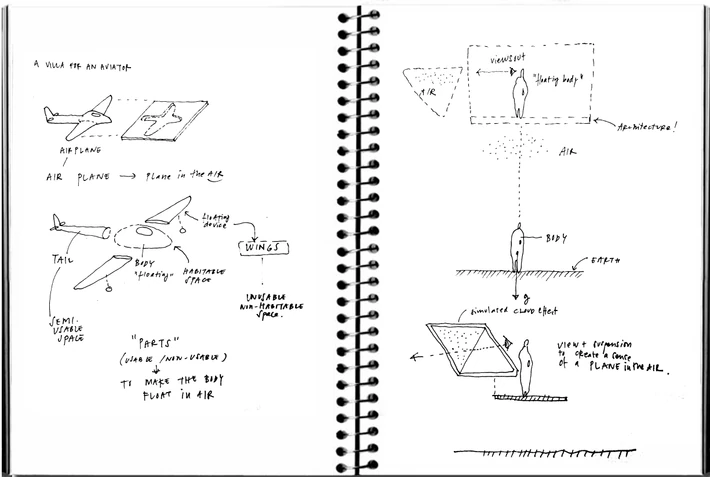 A VILLA FOR AN AVIATOR
AIRPLANE
AIR PLANE → Plane in the AIR
floating
device
WINGS
TAIL
BODY
"floating"
HABITABLE
SPACE
UNUSABLE
NON-HABITABLE
Space.
SEMI-
USABLE
SPACE
"PARTS"
(USABLE / NON-USABLE)
TO MAKE THE BODY
FLOAT IN AIR
views out
AIR
"floating body"
ARCHITECTURE!
AIR
BODY
EARTH
g
simulated CLOUD Effect
view + suspension
to create a sense
of a PLANE in the AIR.